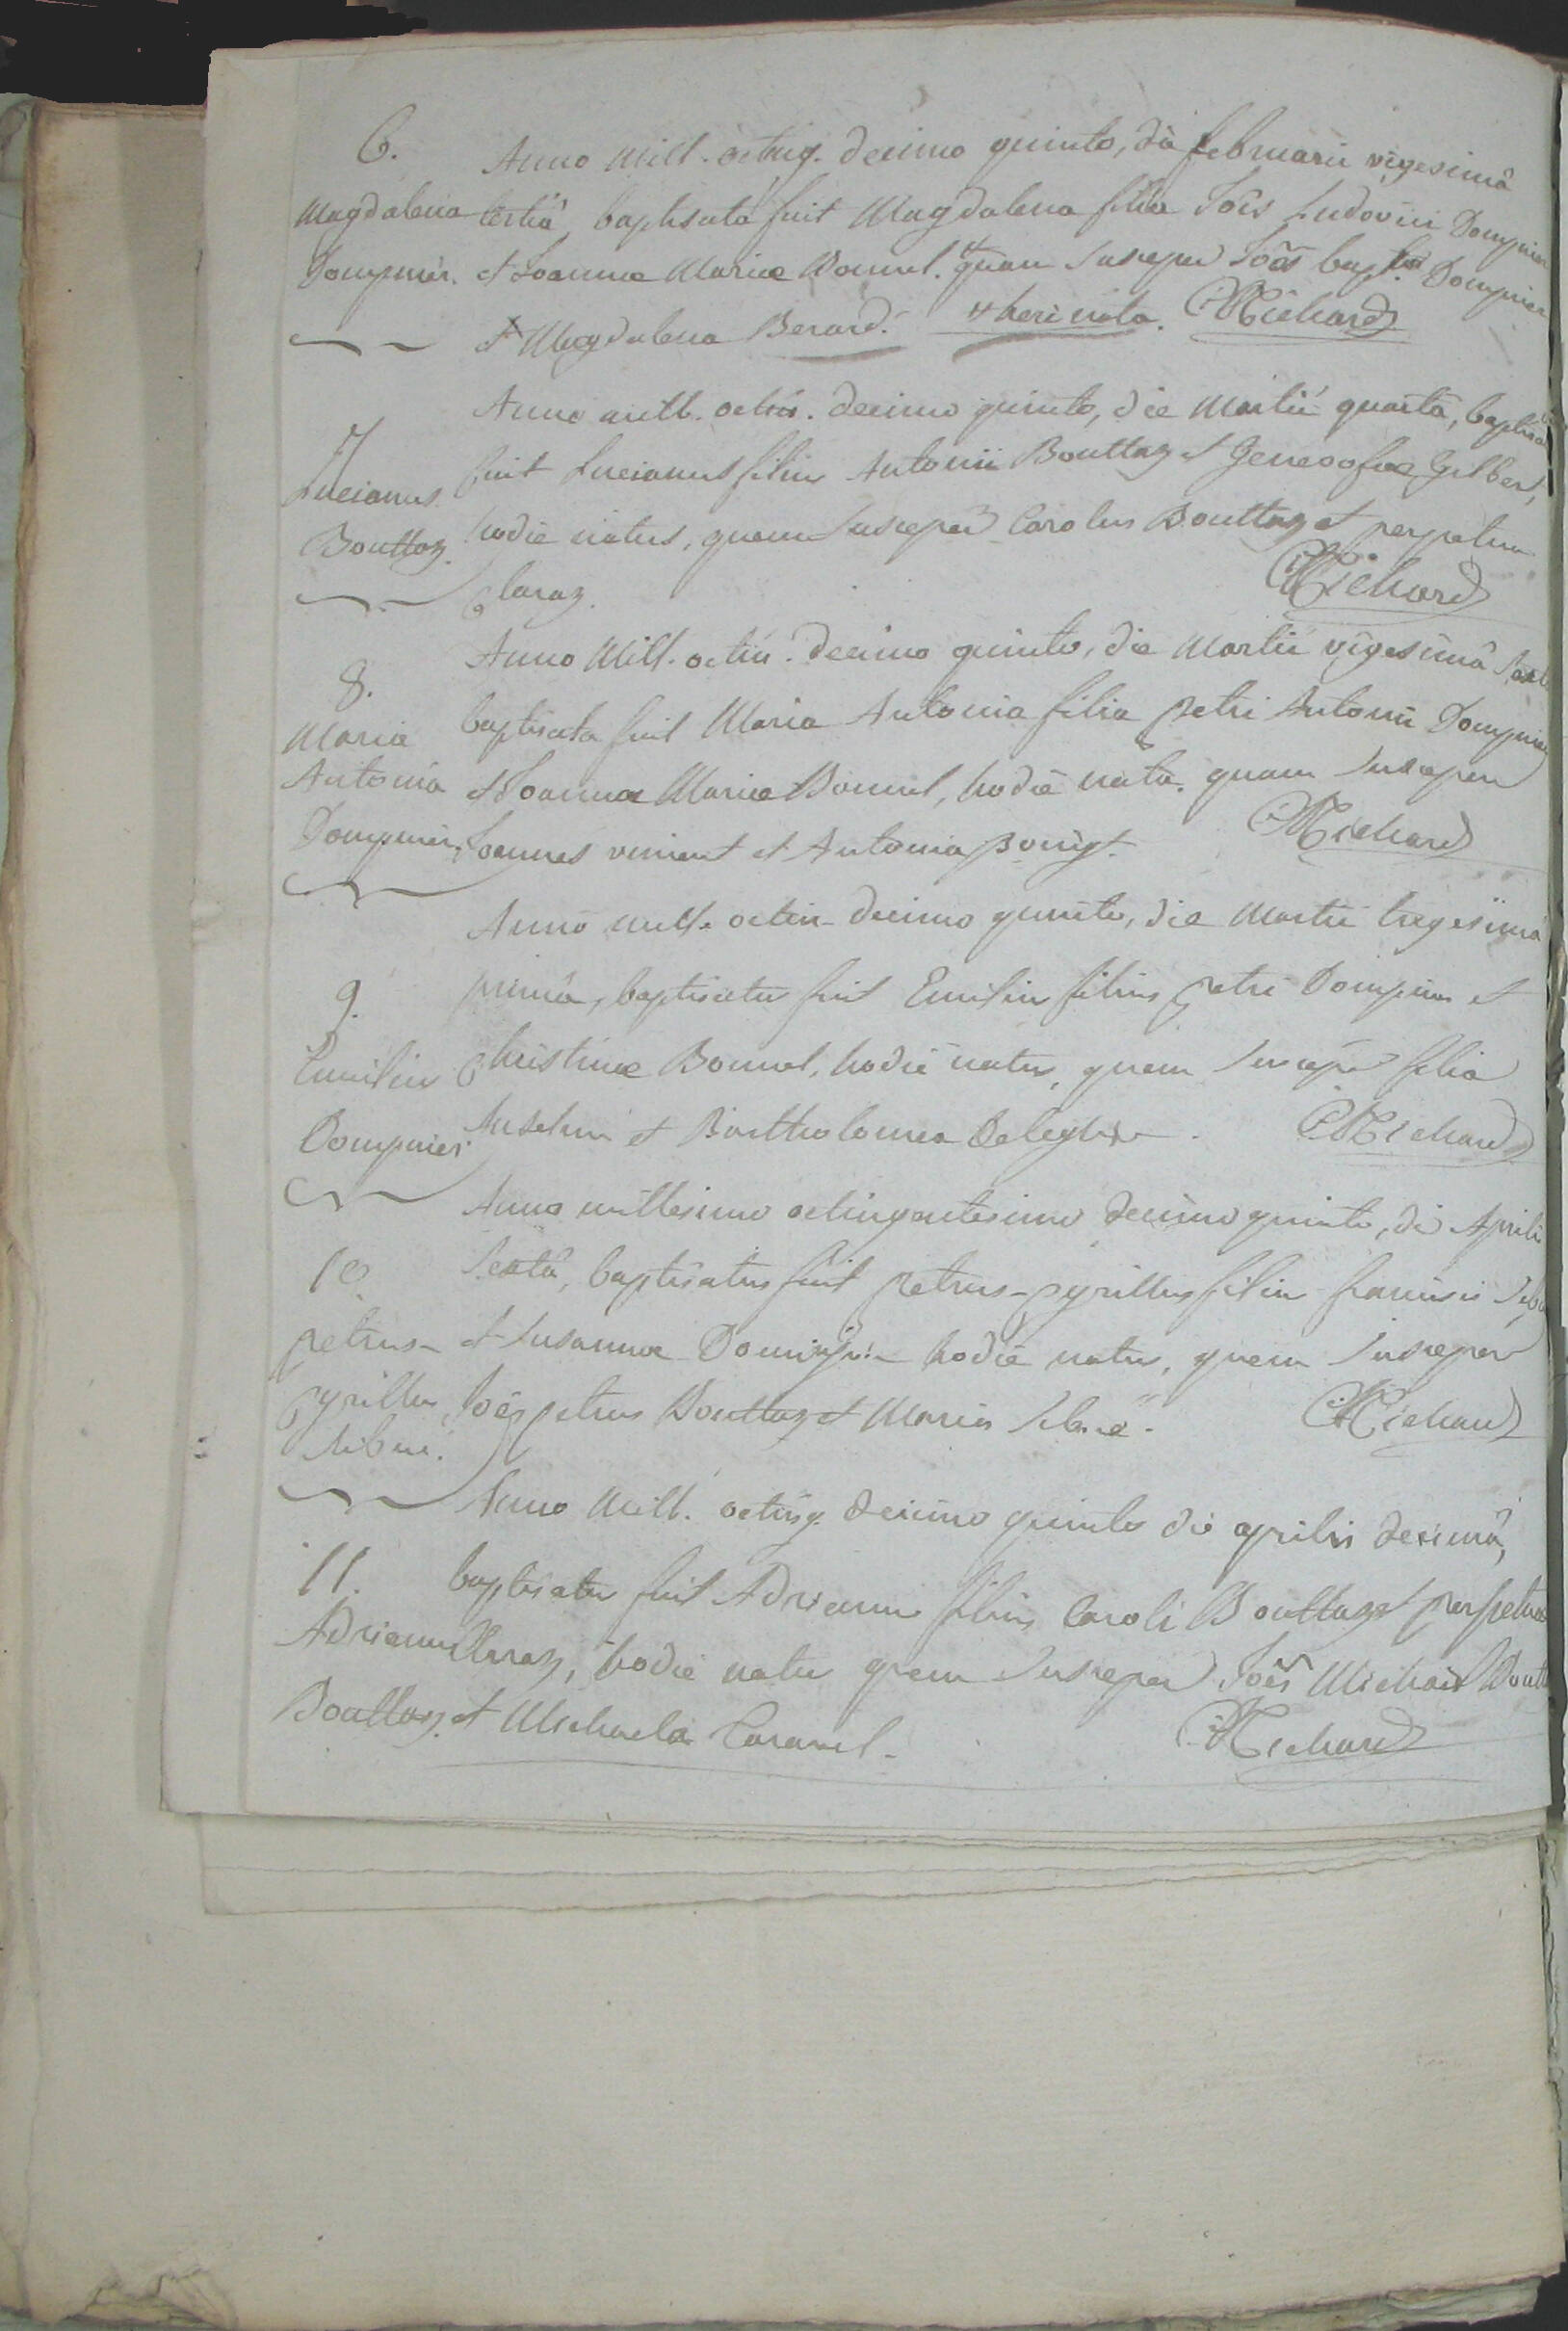 6.
Magdalena
Dompnier.
Anno Mill. octing. decimo quinto, die februarii vigesimâ
tertiâ, baptisata fuit Magdalena filia Joês Ludovici Dompnier
et Joannae Mariae Bonnel. # quam susceper Joês bapta Dompnier
et Magdalena Berard. # heri nata. Michard
7
Lucianus
Bouttaz.
Anno mill. octin. decimo quinto, die Martii quartâ, baptisatus
fuit Lucianus filius Antonii Bouttaz et Genovefae Gilbert,
hodie natus, quem susceper Carolus Bouttaz et perpetua
Claraz. Michard
8.
Maria
Antonia
Dompnier.
Anno Mill. octin. decimo quinto, die Martii vigesimâ sextâ
baptisata fuit Maria Antonia filia petri Antonii Dompnier
et Joannae Mariae Bonnel, hodie nata. quam susceper
Joannes vincent et Antonia Michard
9.
Emilius
Dompnier
Anno mill. octin. decimo quinto, die Martii tregesimâ
primâ, baptisatus fuit Emilius filius petri Dompnier et
Christinae Bonnel, hodie natus, quem suscep. felix
Anselme et Bartholomea Deleglise. Michard
10
petrus-
Cyrillus
Sibué.
Anno millesimo octingentesimo decimo quinto, die Aprilis
sextâ, baptisatus fuit petrus-Cyrillus filius francisci Sibué
et Susannae hodie natus, quem susceper
Joês petrus Bouttaz et Maria Sibué. Michard
11.
Adrianus
Bouttaz.
Anno Mill. octing. decimo quinto die aprilis decimâ,
baptisatus fuit Adrianus filius Caroli Bouttaz et perpetuae
Claraz, hodie natus quem susceper Joês Michaël Boutt
et Michaela Caravel. Michard